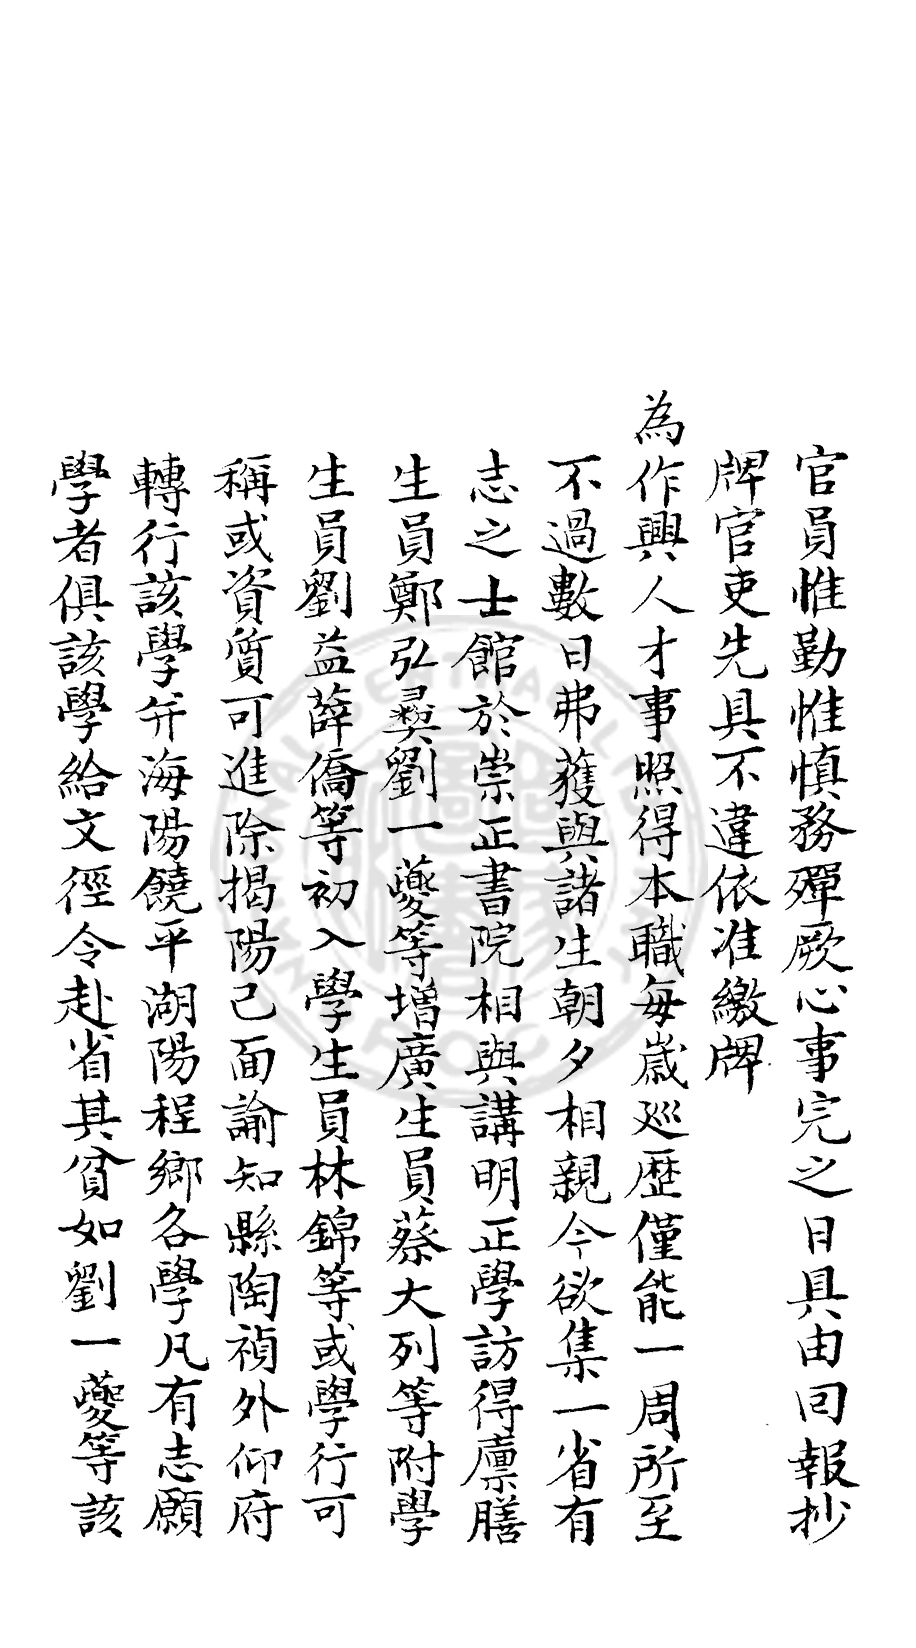 官員惟勤惟慎務殫厥心事完之日具由回報抄
牌官吏先具不違依准繳牌
為作興人才事照得本職每歲巡歷僅能一周所至
不過數日弗獲與諸生朝夕相親今欲集一省有
志之士館於崇正書院相與講明正學訪得廩膳
生員鄭弘彞劉一夔等增廣生員蔡大列等附學
生員劉益薛僑等初入學生員林錦等或學行可
稱或資質可進除揭陽已面諭知縣陶禎外仰府
轉行該學并海陽饒平湖陽程鄉各學凡有志願
學者俱該學給文徑令赴省其貧如劉一夔等該